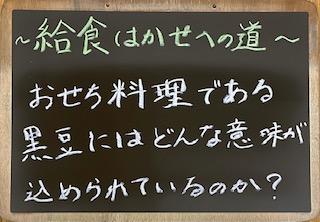 ～給食はかせへの道～
おせち料理である
黒豆にはどんな意味が
込められているのか?